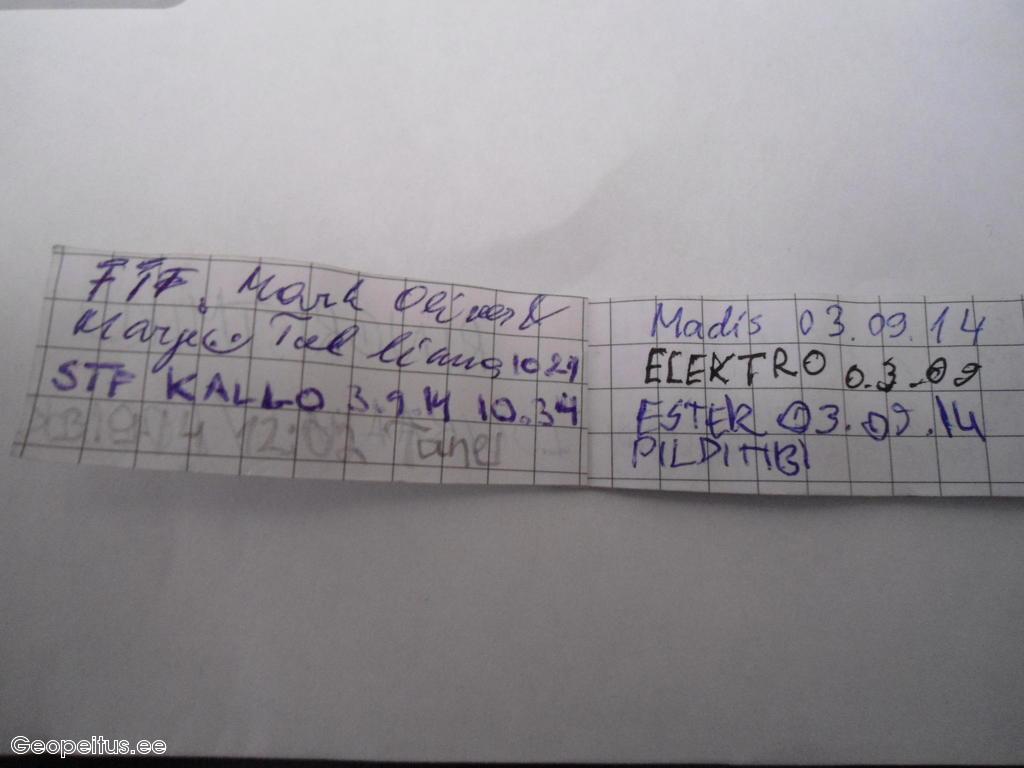 FTF. Mark Oliver &
Tallinna 10 29
STF KALLO 3.9.14 10.34
03.9.14 12:02 Tanel
Madis 03.09.14
ELEKTRO 0.3.09
ESTER 03.09.14
PILDITIIBI
Geopeitus.ee